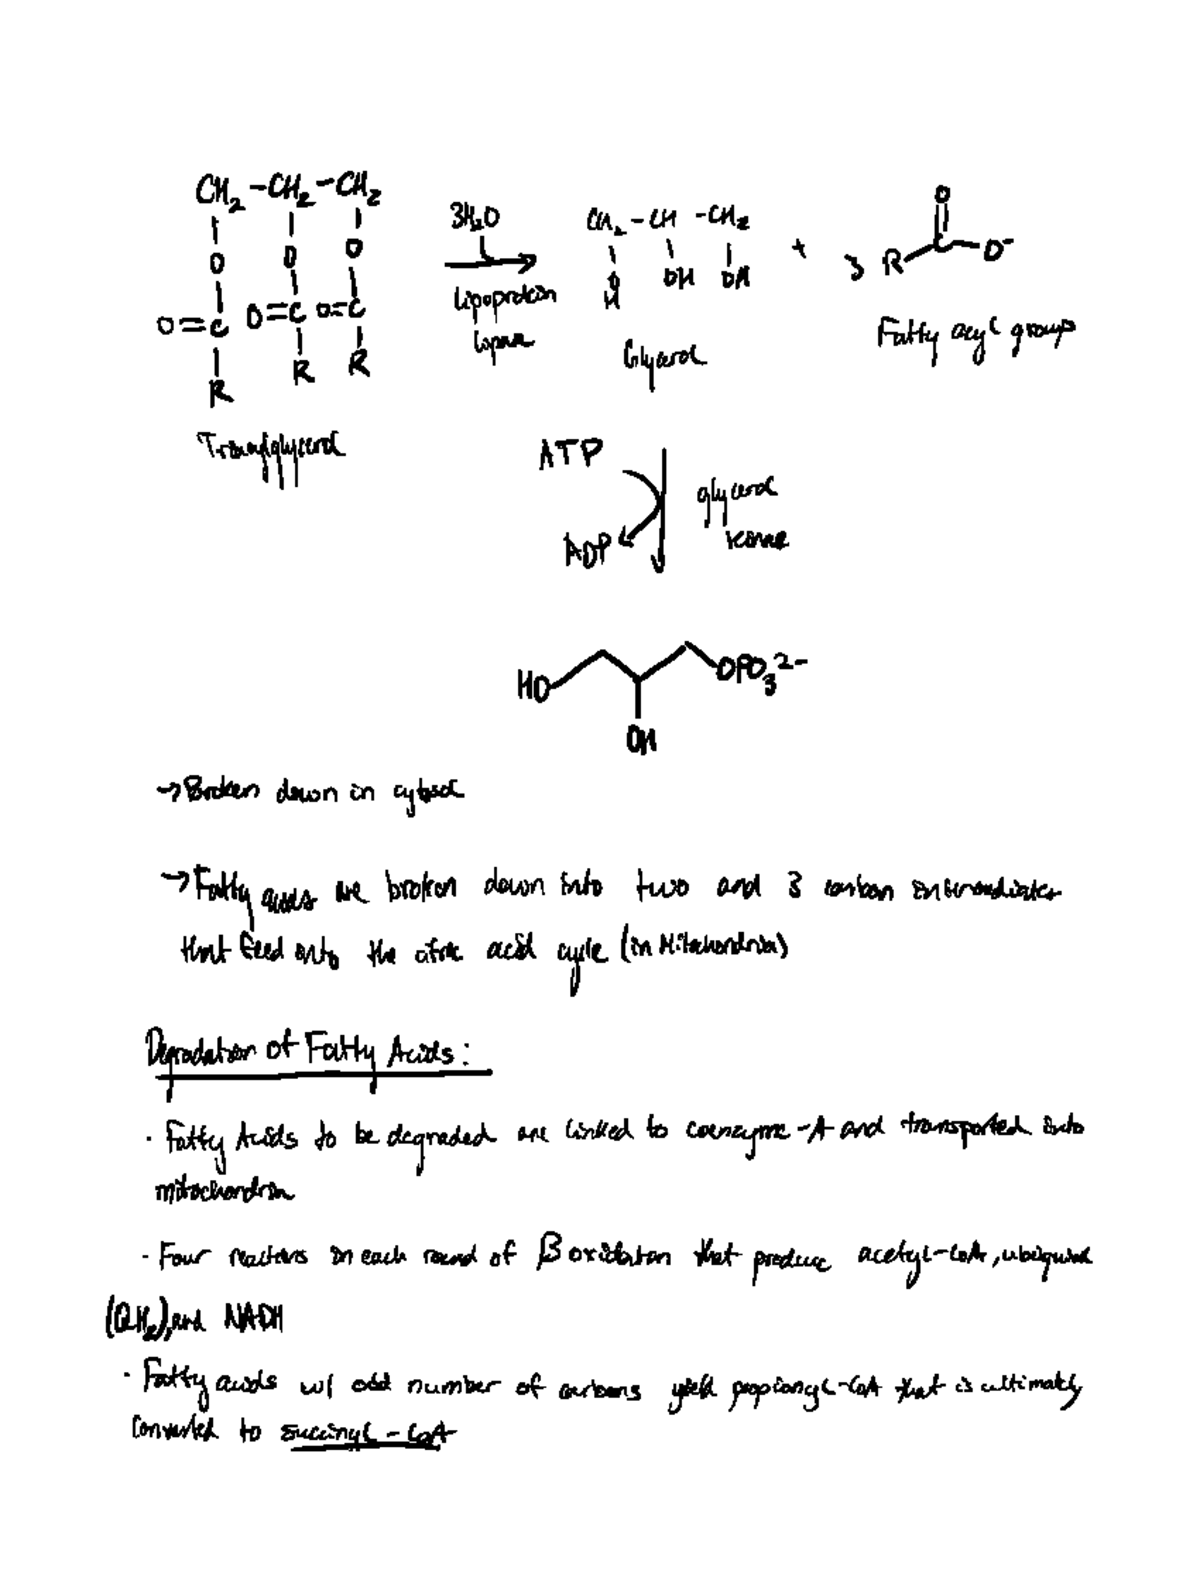 CH2 -CH2 -CH2
O O O
O=C O=C O=C
R R R
Triacylglycerol
3H2O
lipoprotein
lipase
CH2 - CH - CH2
O OH OH
H
Glycerol
+ 3 R C O O-
Fatty acyl groups
ATP
ADP
glycerol
kinase
HO OPO3 2-
OH
→Broken down in cytosol
→Fatty acids are broken down into two and 3 carbon intermediates
that feed into the citric acid cycle (in Mitochondria)
Degradation of Fatty Acids:
· Fatty Acids to be degraded are linked to coenzyme-A and transported into
mitochondria
· Four reactions in each round of β oxidation that produce acetyl-CoA, ubiquinol
(QH2), and NADH
· Fatty acids w/ odd number of carbons yield propionyl-CoA that is ultimately
converted to succinyl-CoA